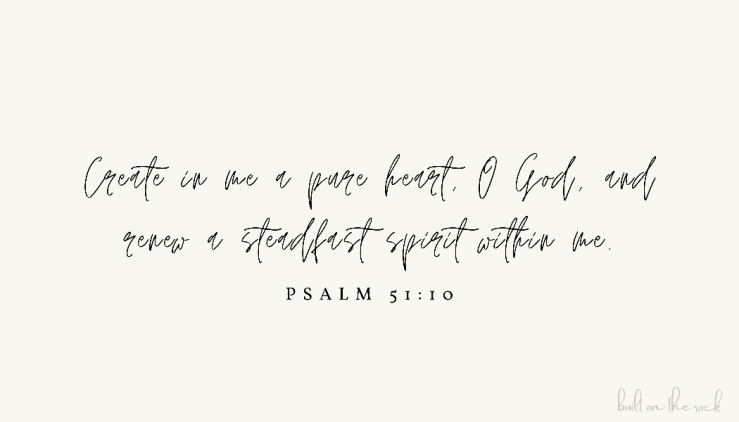 Create in me a pure heart, O God, and
renew a steadfast spirit within me.
PSALM 51:10
built on the rock